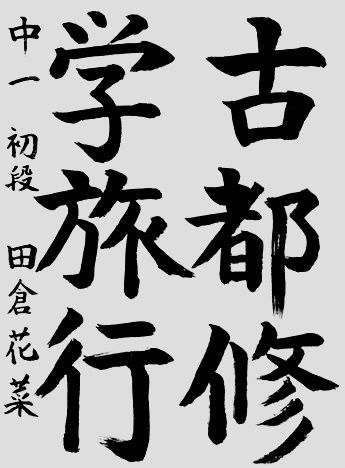 古都修
学旅行
中一 初段 田倉花菜